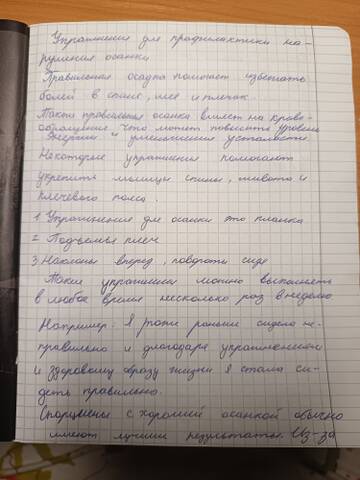 Упражнения для профилактики на-
рушения осанки
Правильная осадка помогает избегать
болей в спине, шее и плечах.
Также правильная осанка влияет на крово-
обращение что может повысить уровень
энергии и уменшения усталости.
Некоторые упражнения помогают
укрепить мышцы спины, живота и
плечевого пояса.
1 Упражнение для осанки это планка
2 Подъемы плеч
3. Наклоны вперед, повороты сидя
Такие упражнения можно выполнять
в любое время несколько раз в неделю
Например: я раньше сидела не-
правильно и благодаря упражнениям
и здоровому образу жизни я стала си-
деть правильно.
Спортсмены с хорошей осанкой обычно
имеют лучшие результаты. Из-за